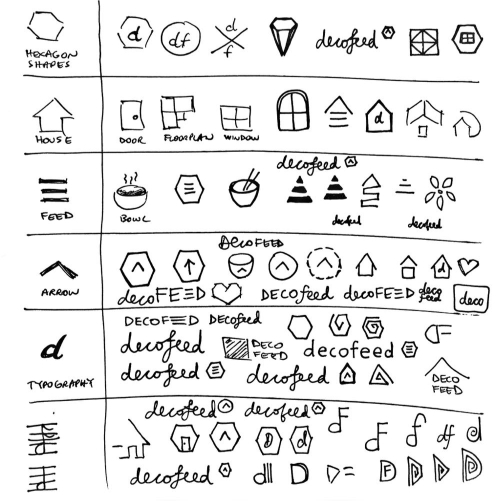 HEXAGON
SHAPES
d
df
d
f
decofeed
HOUSE
DOOR
FLOORPLAN
WINDOW
d
FEED
BOWL
decofeed
decofeed
decofeed
ARROW
DECOFEED
d
decoFEED
DECOfeed
decoFEED
deco
feed
deco
d
TYPOGRAPHY
DECOFEED
DECOfeed
decofeed
DECO
FEED
decofeed
decofeed
decofeed
d
DECO
FEED
decofeed
decofeed
D
d
dF
df
decofeed
D
F
D